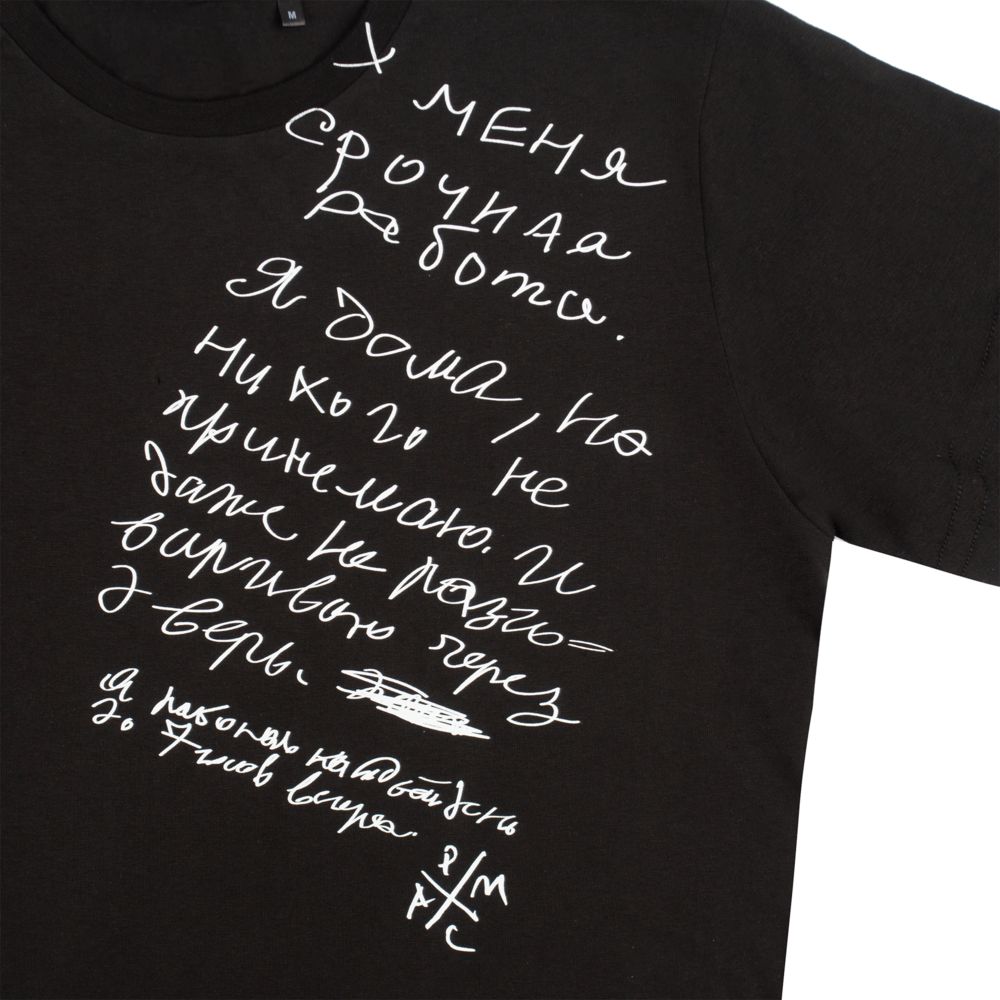 M
У МЕНЯ
СРОЧНАЯ
работа.
Я дома, но
никого не
принемаю. и
даже не разго=
вариваю через
дверь.
Я работаю каждый день
до 7 часов вечера.
Р М
А С